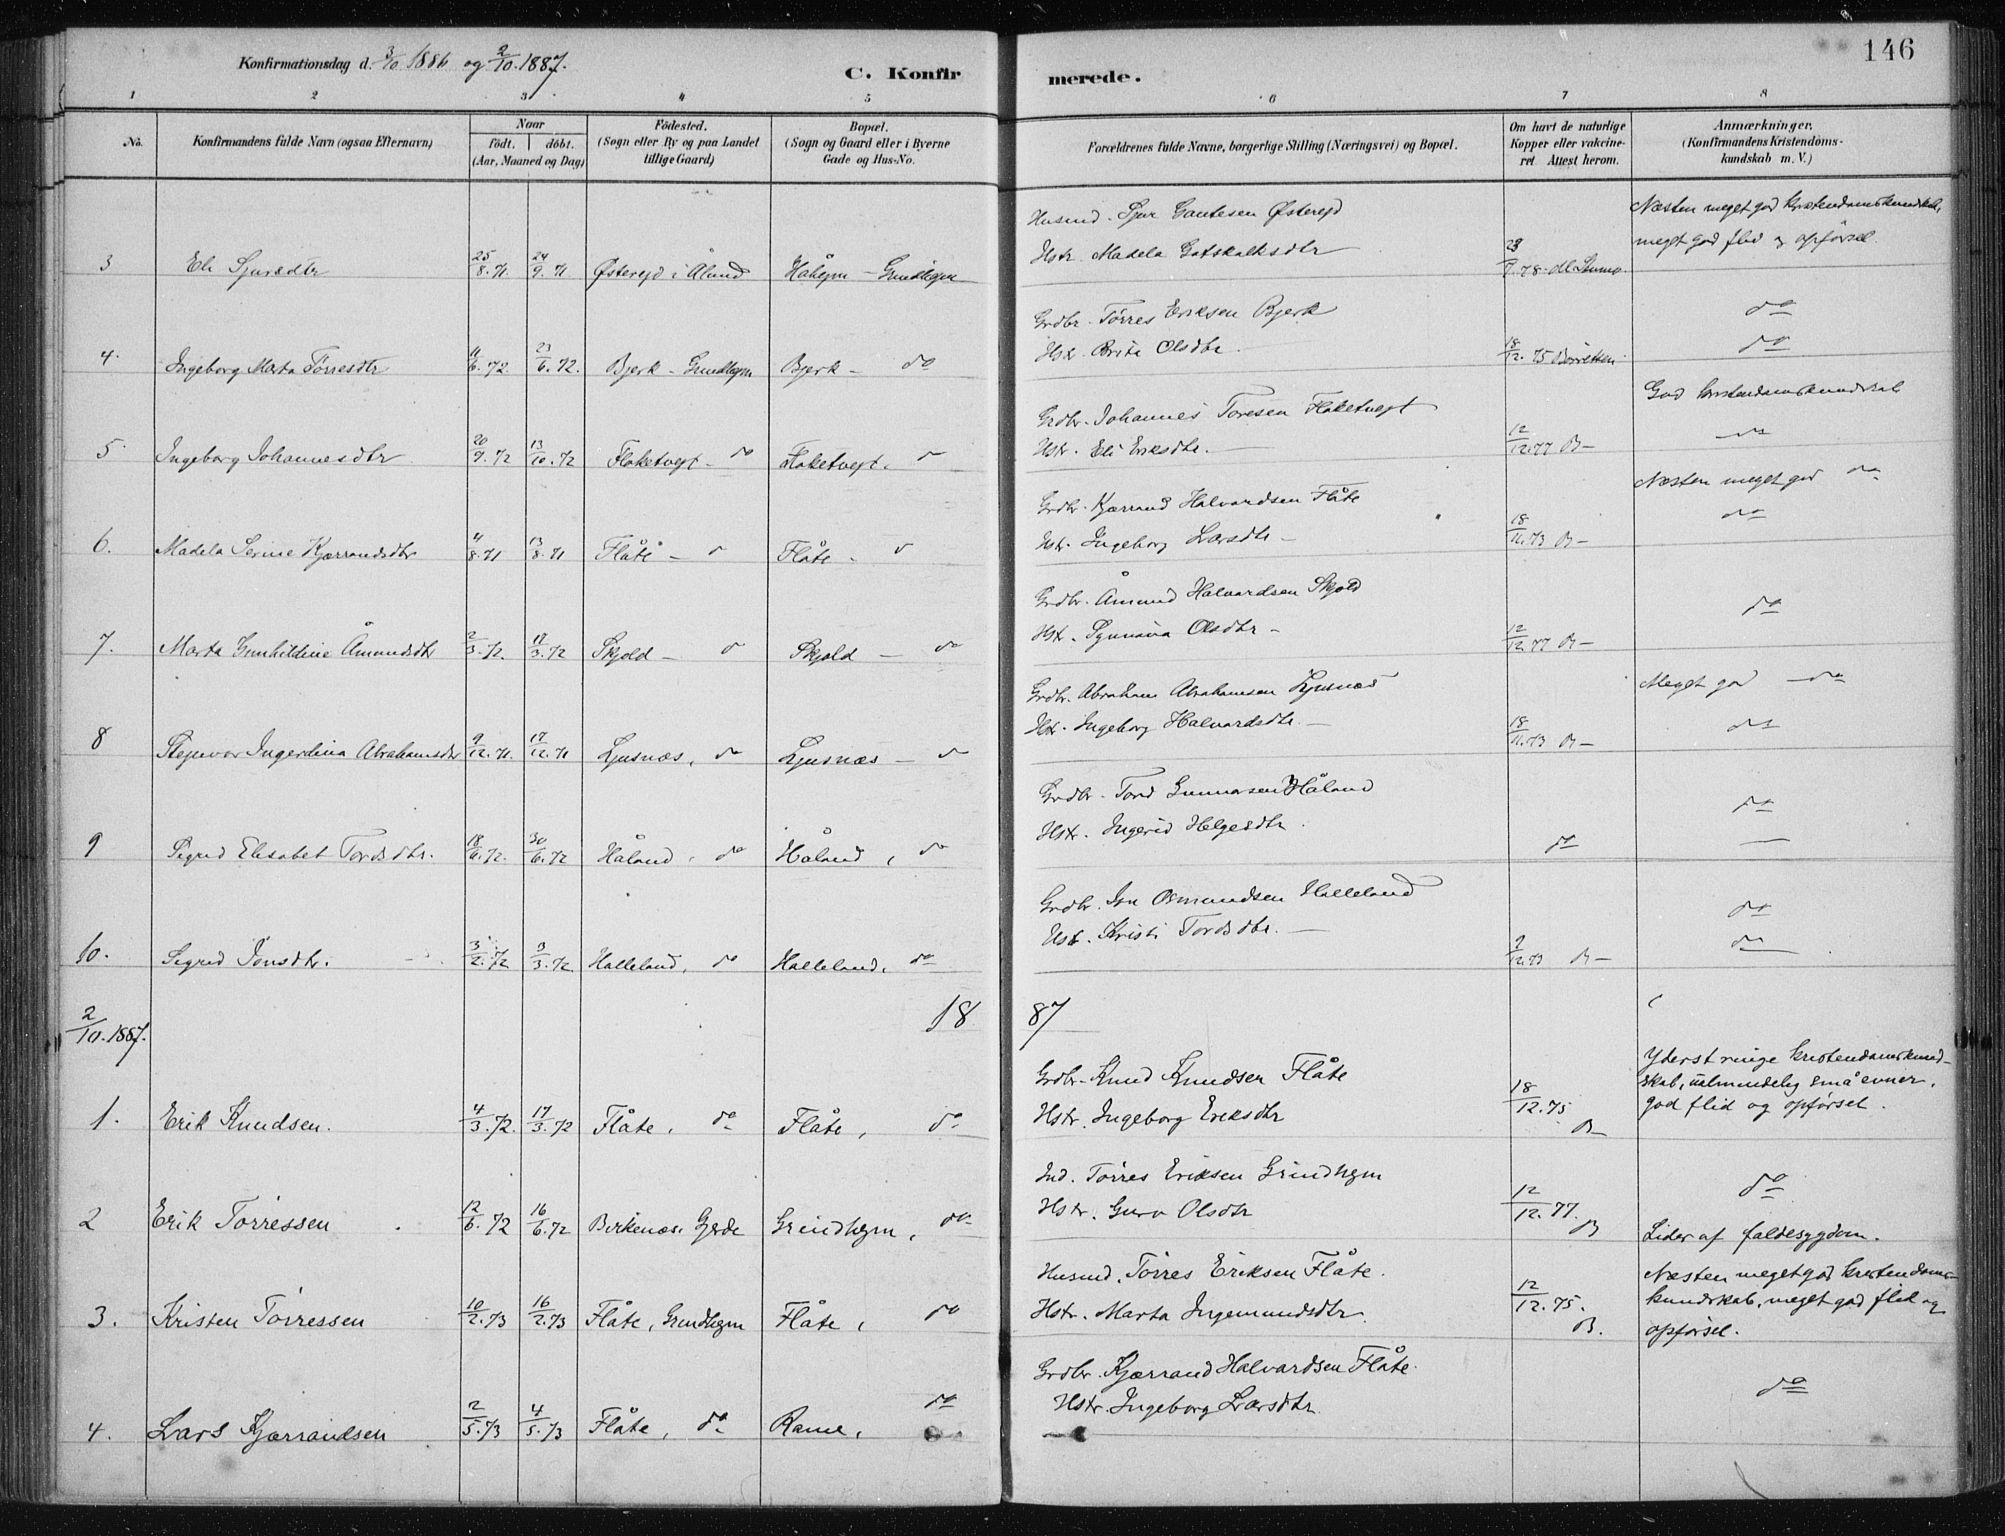 Konfirmationsdag d. 3/10 1886 og 2/10. 1887.
C. Konfirmerede.
146
1 2 3 4 5 6 7 8
No.
Konfirmandens fulde Navn (ogsaa Efternavn)
Naar
født. døbt.
(Aar, Maaned og Dag)
Fødested.
(Sogn eller By og paa Landet
tillige Gaard)
Bopæl.
(Sogn og Gaard eller i Byerne
Gade og Hus-No.
Forældrenes fulde Navne, borgerlige Stilling (Næringsvei) og Bopæl.
Om havt de naturlige
Kopper eller vakcine-
ret Attest herom.
Anmærkninger.
(Konfirmandens Kristendoms-
kundskab m. V.)
Husmd. Sjur Gautesen Østerejd
Hstr. Madela Gotskalksdtr
Næsten meget god kristendomskundskab,
meget god flid og opførsel.
3 Eli Sjursdtr 25/8.71 24/9.71 Østerejd i Ålund
Grdbr. Törres Eriksen Bjerk do
Hstr. Brita Olsdtr. do
4. Ingeborg Marta Törresdtr 11/6.72 23/6.72. Bjerk - Grindhejm Bjerk - do 18/12.75
Grdbr. Johannes Toresen Floketvejt
Hstr. Eli Eriksdtr. —
God kristendomskundskab
do
5 Ingeborg Johannesdtr 20/9.72 13/10.72 Floketvejt - do Floketvejt. do 12/12.77 B—
Grdbr. Kjærrand Halvardsen Flåte
Hstr. Ingeborg Larsdtr —
Næsten meget god do
do
6. Madela Serine Kjærrandsdtr 4/8.71 13/8.71 Flåte — do Flåte - do 18/11.73 B—
Grdbr. Åmund Halvardsen Skjold do
Hstr. Synnøva Olsdtr —
7. Marta Gunhildine Åmundsdtr 2/3.72. 17/3.72 Skjold — do Skjold — do 12/12.77 B—
Grdbr. Abraham Abrahamsen Ljusnæs
Hstr. Ingeborg Halvardsdtr. —
Meget god do
do
8 Ingerdina Abrahamsdtr 9/12.71. 17/12.71 Ljusnæs, do Ljusnæs — do 18/11.73 B—
Grdbr. Tord Gunnarsen Håland do
Hstr. Ingerid Helgesdtr. —
9 Sigrid Elisabet Tordsdtr. 18/6.72. 30/6.72 Håland, do Håland, do do
Grdbr. Jon Osmundsen Halleland do
Hstr. Kristi Tordsdtr. — do
10. Sigrid Jonsdtr. 3/2.72 3/3.72 Halleland, do Halleland, do B—
2/10.1887.
1887
Grdbr. Knud Knudsen Flåte
Hstr. Ingeborg Eriksdtr
Yderst ringe kristendomskund-
skab, ualmindelig små evner,
god flid og opførsel.
1. Erik Knudsen. 4/3.72. 17/3.72 Flåte, do Flåte, do 18/12.75 B
Ind. Törres Eriksen Grindhejm do
Hstr. Guro Olsdtr
2 Erik Törressen 12/6.72 16/6.72 Birkenæs. Gjerde Grindhejm, do 12/12.77. B
Lider af faldesygdom.
Husmd. Törres Eriksen Flåte.
Hstr. Marta Ingemundsdtr.
Næsten meget god kristendoms-
kundskab, meget god flid og
opførsel.
3. Kristen Törressen 10/2.73 16/2.73 Flåte, Grindhejm Flåte, do 12/12.75. B.
Grdbr. Kjærrand Halvardsen Flåte.
Hstr. Ingeborg Larsdtr. do
4. Lars Kjærrandsen 2/5.73 4/5.73 Flåte, do Rame, do